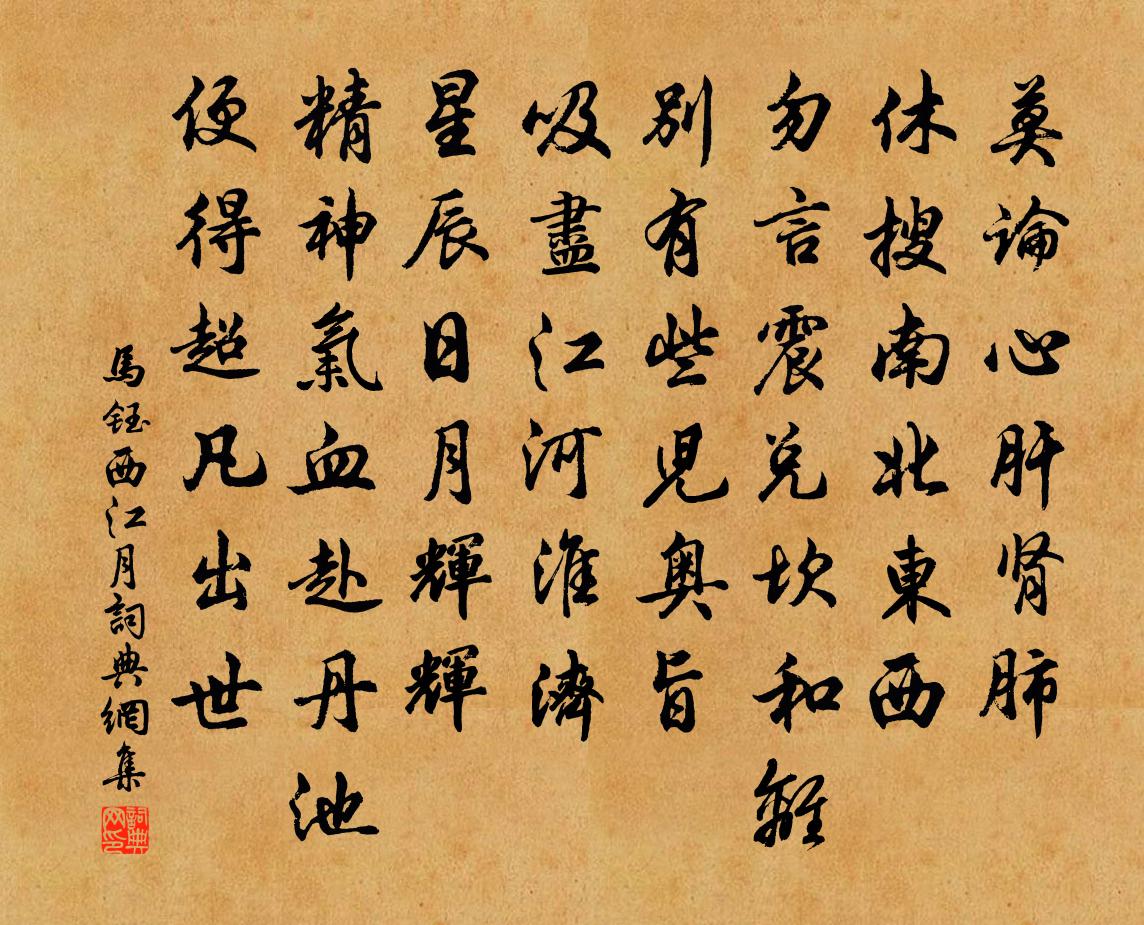 莫論心肝腎肺
休搜南北東西
勿言震兌坎和離
別有些兒奧旨
吸盡江河淮濟
星辰日月輝輝
精神氣血赴丹池
便得超凡出世
馬鈺西江月詞典網集
詞典网印